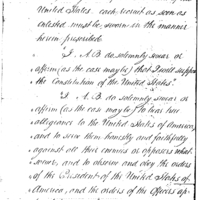 United States. each recruit as soon as
enlisted must be sworn in the manner
herein prescribed.
"I. A. B. do solemnly swear or
affirm (as the case may be) that I will support
the Constitution of the United States."
"I. A. B. do solemnly swear or
affirm (as the case may be) to bear true
allegiance to the United States of America,
and to serve them honestly and faithfully
against all their enemies or opposers what
soever, and to observe and obey the orders
of the President of the United States of
America, and the orders of the Officers ap-